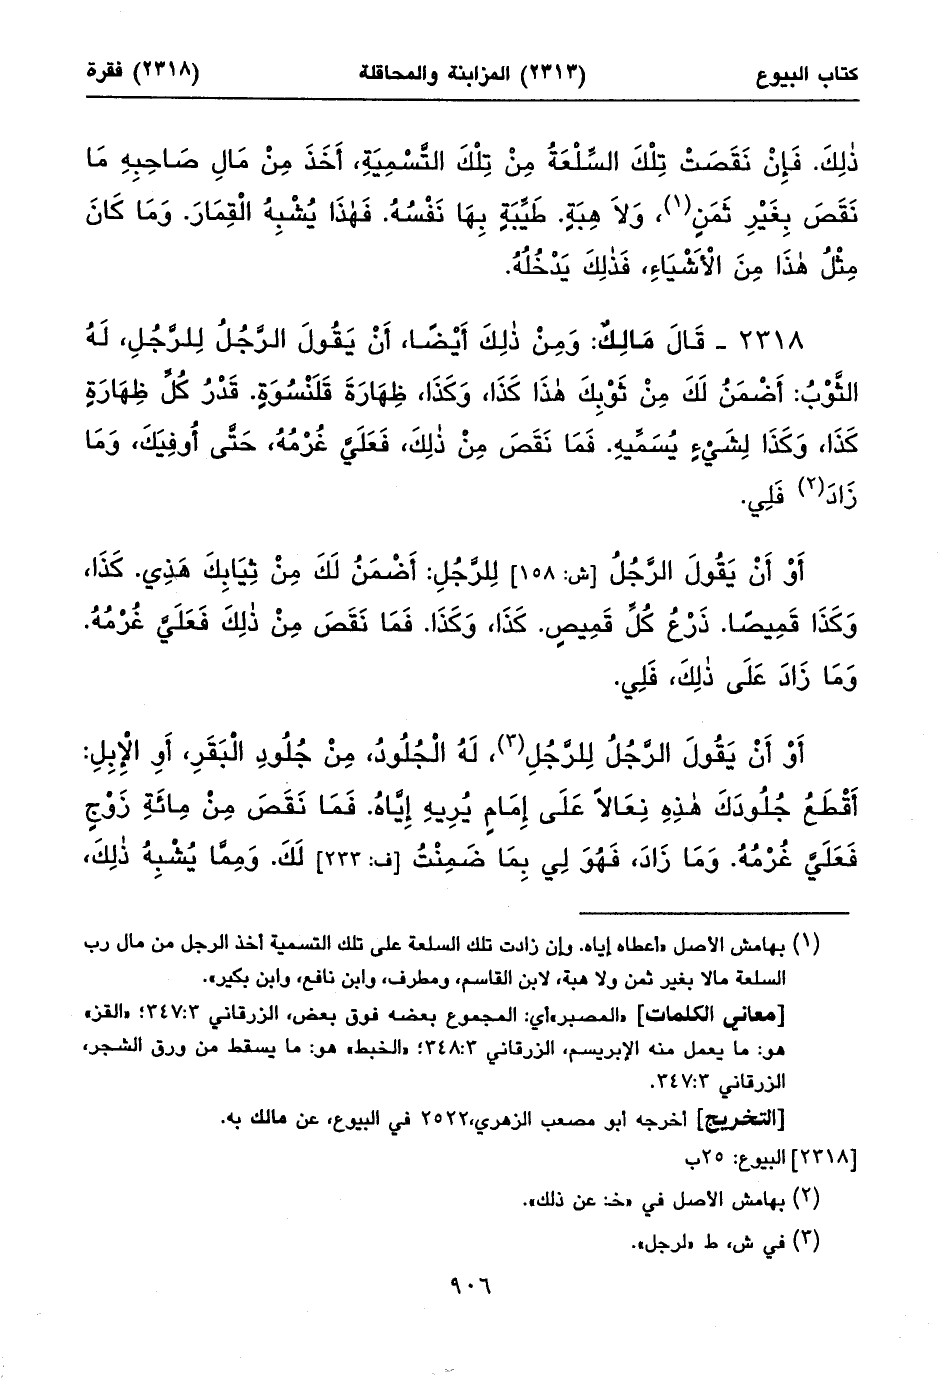 كتاب البيوع (٢٣١٣) المزابنة والمحاقلة (٢٣١٨) فقرة
ذٰلِكَ. فَإِنْ نَقَصَتْ تِلْكَ السِّلْعَةُ مِنْ تِلْكَ التَّسْمِيَةِ، أَخَذَ مِنْ مَالِ صَاحِبِهِ مَا
نَقَصَ بِغَيْرِ ثَمَنٍ(١)، وَلاَ هِبَةٍ. طَيِّبَةٍ بِهَا نَفْسُهُ. فَهٰذَا يُشْبِهُ الْقِمَارَ. وَمَا كَانَ
مِثْلُ هٰذَا مِنَ الْأَشْيَاءِ، فَذٰلِكَ يَدْخُلُهُ.
٢٣١٨ - قَالَ مَالِكٌ: وَمِنْ ذٰلِكَ أَيْضًا، أَنْ يَقُولَ الرَّجُلُ لِلرَّجُلِ، لَهُ
الثَّوْبُ: أَضْمَنُ لَكَ مِنْ ثَوْبِكَ هٰذَا كَذَا، وَكَذَا، ظِهَارَةَ قَلَنْسُوَةٍ. قَدْرُ كُلِّ ظِهَارَةٍ
كَذَا، وَكَذَا لِشَيْءٍ يُسَمِّيهِ. فَمَا نَقَصَ مِنْ ذٰلِكَ، فَعَلَيَّ غُرْمُهُ، حَتَّى أُوفِيَكَ، وَمَا
زَادَ(٢) فَلِي.
أَوْ أَنْ يَقُولَ الرَّجُلُ [ش: ١٥٨] لِلرَّجُلِ: أَضْمَنُ لَكَ مِنْ ثِيَابِكَ هَذِي. كَذَا،
وَكَذَا قَمِيصًا. ذَرْعُ كُلِّ قَمِيصٍ. كَذَا، وَكَذَا. فَمَا نَقَصَ مِنْ ذٰلِكَ فَعَلَيَّ غُرْمُهُ.
وَمَا زَادَ عَلَى ذٰلِكَ، فَلِي.
أَوْ أَنْ يَقُولَ الرَّجُلُ لِلرَّجُلِ(٣)، لَهُ الْجُلُودُ، مِنْ جُلُودِ الْبَقَرِ، أَوِ الْإِبِلِ:
أَقْطَعُ جُلُودَكَ هٰذِهِ نِعَالاً عَلَى إِمَامٍ يُرِيهِ إِيَّاهُ. فَمَا نَقَصَ مِنْ مِائَةِ زَوْجٍ
فَعَلَيَّ غُرْمُهُ. وَمَا زَادَ، فَهُوَ لِي بِمَا ضَمِنْتُ [ف: ٢٣٣] لَكَ. وَمِمَّا يُشْبِهُ ذٰلِكَ،
(١) بهامش الأصل «أعطاه إياه. وإن زادت تلك السلعة على تلك التسمية أخذ الرجل من مال رب
السلعة مالا بغير ثمن ولا هبة، لابن القاسم، ومطرف، وابن نافع، وابن بكير».
[معاني الكلمات] «المصبر»أي: المجموع بعضه فوق بعض، الزرقاني ٣٤٧:٣؛ «القز»
هو: ما يعمل منه الإبريسم، الزرقاني ٣٤٨:٣؛ «الخبط» هو: ما يسقط من ورق الشجر،
الزرقاني ٣٤٧:٣.
[التخريج] أخرجه أبو مصعب الزهري،٢٥٢٢ في البيوع، عن مالك به.
[٢٣١٨] البيوع: ٢٥ب
(٢) بهامش الأصل في «خـ: عن ذلك».
(٣) في ش، ط «لرجل».
٩٠٦